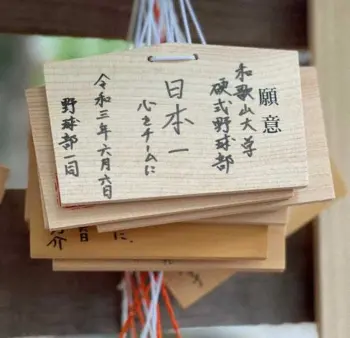 願意
和歌山大学
硬式野球部
日本一
心をチームに
令和三年六月六日
野球部一同
に、
介